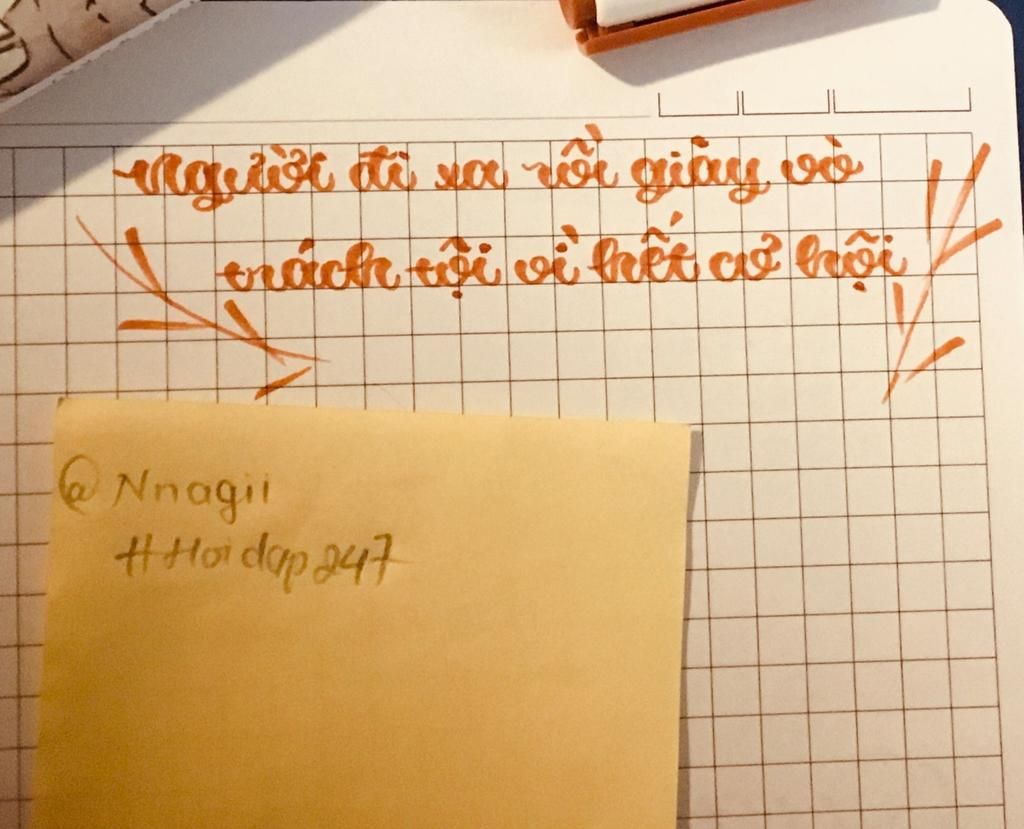 Người đi xa rồi giày vò
trách tội vì hết cơ hội
@Nnagii
#Hoidap247